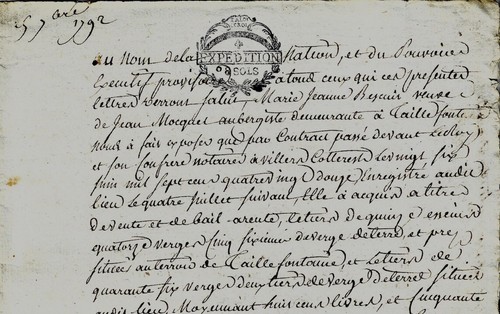 5 7bre 1792
EXPEDITION
8 SOLS
Au Nom de la Nation, et du Pouvoir
Executif provisoire a tous ceux qui ces presentes
lettres verront salut, Marie Jeanne veuve
de Jean Mocquet aubergiste demeurante à Taillefontaine
Nous à fait exposer que par Contract passé devant
et son Confrere notaires à Villers Cotterest Le vingt six
Juin mil sept cens quatrevingt douze Enregistré audit
lieu Le quatre Juillet suivant, Elle à acquis a titre
de vente et de bail arente, Le tiers de quinze encien
quatorze verges Cinq sixiemes de verge de terre et prez
situées au terroir de Taillefontaine, et Le tiers de
quarante six verges deux tiers de verge de terre situées
audit lieu, Moyennant huit cens livres, et Cinquante